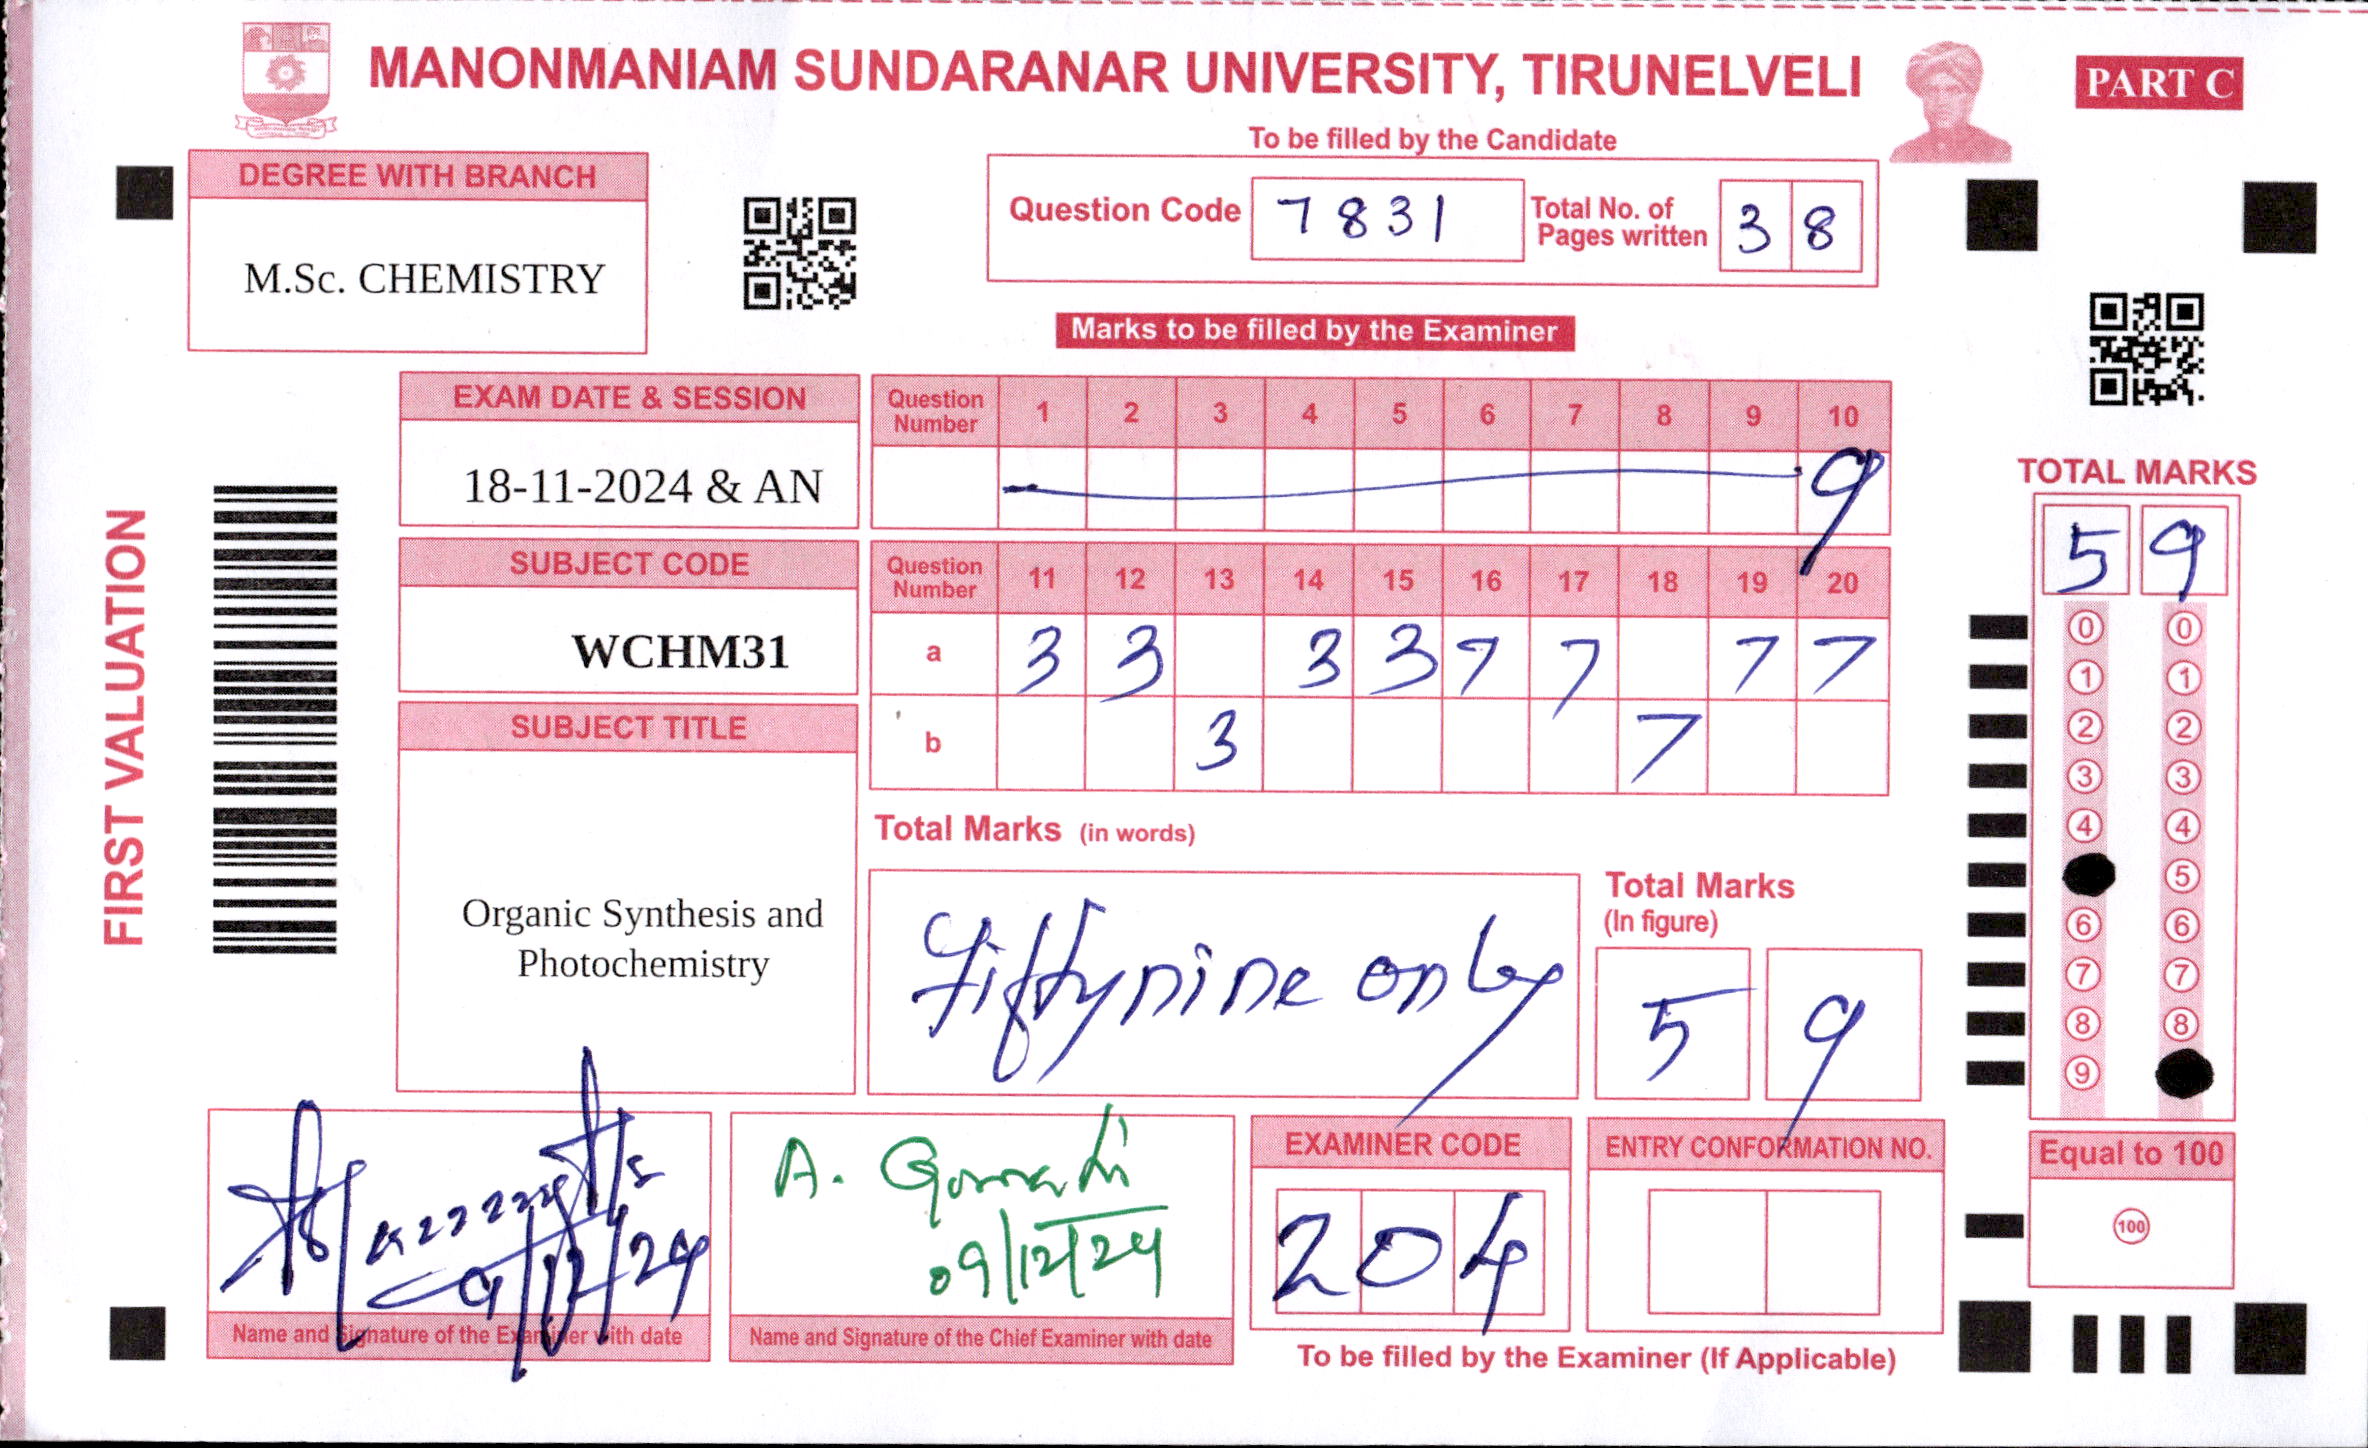 MANONMANIAM SUNDARANAR UNIVERSITY, TIRUNELVELI
PART C
To be filled by the Candidate
DEGREE WITH BRANCH
M.Sc. CHEMISTRY
Question Code 7831 Total No. of Pages written 38
Marks to be filled by the Examiner
EXAM DATE & SESSION
18-11-2024 & AN
Question Number 1 2 3 4 5 6 7 8 9 10
9
SUBJECT CODE
WCHM31
Question Number 11 12 13 14 15 16 17 18 19 20
a 3 3 3 3 7 7 7 7
b 3 7
SUBJECT TITLE
Organic Synthesis and
Photochemistry
Total Marks (in words)
Fiftynine only
Total Marks
(In figure)
5 9
FIRST VALUATION
TOTAL MARKS
5 9
0 0
1 1
2 2
3 3
4 4
5
6 6
7 7
8 8
9
Equal to 100
100
9/12/24
Name and Signature of the Examiner with date
A. Gomathi
09/12/24
Name and Signature of the Chief Examiner with date
EXAMINER CODE
204
ENTRY CONFORMATION NO.
To be filled by the Examiner (If Applicable)